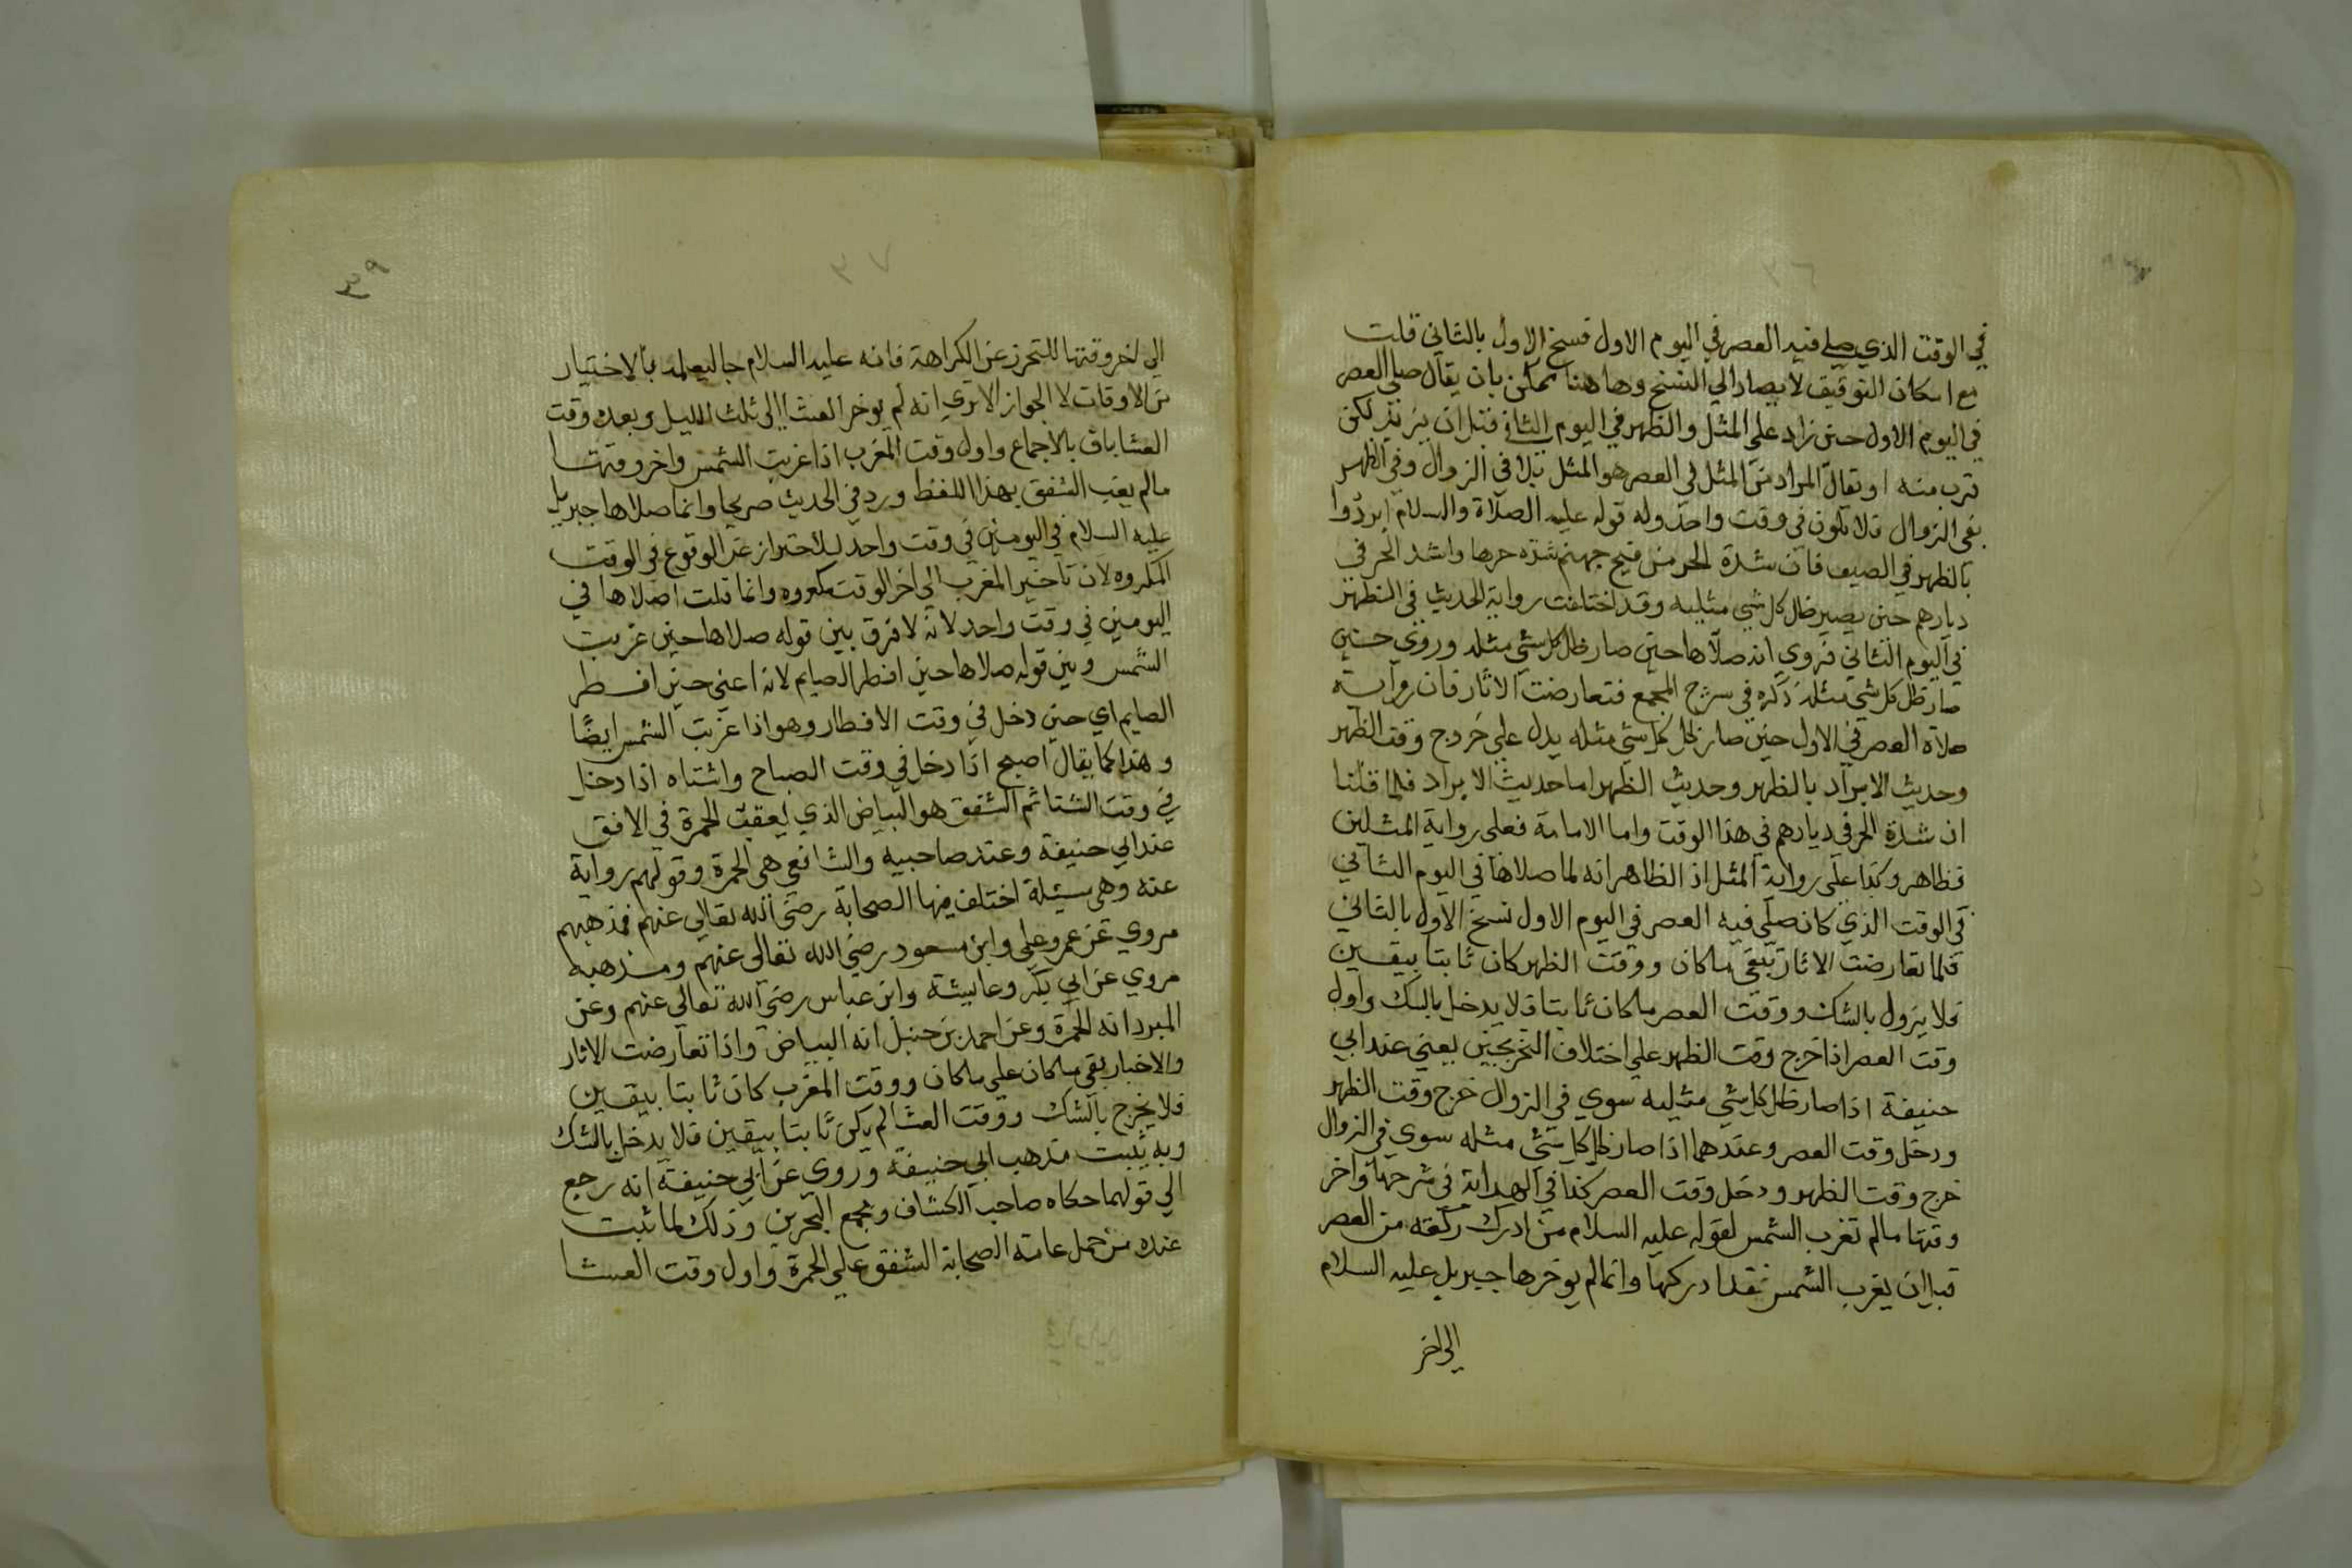 في الوقت الذي صلي فيه العصر في اليوم الاول فنسخ الاول بالثاني قلت
مع امكان التوفيق لا يصار الي النسخ وها هنا ممكن بان يقال صلي العصر
في اليوم الاول حين زاد علي المثل والظهر في اليوم الثاني قبل ان يزيد لكن
قرب منه او يقال المراد من المثل في العصر هو المثل بلا في الزوال وفي الظهر
بفي الزوال فلا يكون في وقت واحد وله قوله عليه الصلاة والسلام ابردوا
بالظهر في الصيف فان شدة الحر من فيح جهنم شدة حرها واشد الحر في
ديارهم حين يصير ظل كل شي مثليه وقد اختلفت رواية الحديث في الظهر
في اليوم الثاني فروي انه صلاها حين صار ظل كل شي مثله وروي حين
صار ظل كل شي مثله ذكره في شرح المجمع فتعارضت الاثار فان رواية
صلاة العصر في الاول حين صار ظل كل شي مثله يدل علي خروج وقت الظهر
وحديث الابراد بالظهر وحديث الظهر اما حديث الابراد فلما قلنا
ان شدة الحر في ديارهم في هذا الوقت واما الامامة فعلي رواية المثلين
فظاهر وكذا علي رواية المثل اذ الظاهر انه لما صلاها في اليوم الثاني
في الوقت الذي كان صلي فيه العصر في اليوم الاول نسخ الاول بالثاني
فلما تعارضت الاثار تبقي ما كان ووقت الظهر كان ثابتا بيقين
فلا يزول بالشك ووقت العصر ما كان ثابتا فلا يدخل بالشك واول
وقت العصر اذا خرج وقت الظهر علي اختلاف التخريجين يعني عند ابي
حنيفة اذا صار ظل كل شي مثليه سوي في الزوال خرج وقت الظهر
ودخل وقت العصر وعندهما اذا صار ظل كل شي مثله سوي في الزوال
خرج وقت الظهر ودخل وقت العصر كذا في الهداية في شرحها واخر
وقتها مالم تغرب الشمس لقوله عليه السلام من ادرك ركعة من العصر
قبل ان يغرب الشمس فقد ادركها وانما لم يوخرها جبريل عليه السلام
الي اخر
٣٩
٣٧
الي اخر وقتها للتحرز عن الكراهة فانه عليه السلام جا ليعلمه بالاختيار
من الاوقات لا الجواز الا تري انه لم يوخر العشا الي ثلث الليل وبعده وقت
العشا باق بالاجماع واول وقت المغرب اذا غربت الشمس واخر وقتها
مالم يغب الشفق بهذا اللفظ ورد في الحديث صريحا وانما صلاها جبريل
عليه السلام في اليومين في وقت واحد للاحتراز عن الوقوع في الوقت
المكروه لان تاخير المغرب الي اخر الوقت مكروه وانما قلت اصلاها في
اليومين في وقت واحد لانه لا فرق بين قوله صلاها حين غربت
الشمس وبين قوله صلاها حين افطر الصايم لانه اعني حين افطر
الصايم اي حين دخل في وقت الافطار وهو اذا غربت الشمس ايضًا
وهذا كما يقال اصبح اذا دخل في وقت الصباح واشتاه اذا دخل
في وقت الشتا ثم الشفق هو البياض الذي يعقب الحمرة في الافق
عند ابي حنيفة وعند صاحبيه والشافعي هي الحمرة وقولهم رواية
عنه وهي مسيلة اختلف فيها الصحابة رضي الله تعالي عنهم فمذهبهم
مروي عن عمر وعلي وابن مسعود رضي الله تعالي عنهم ومذهبه
مروي عن ابي بكر وعايشة وابن عباس رضي الله تعالي عنهم وعن
المبرد انه الحمرة وعن احمد بن حنبل انه البياض واذا تعارضت الاثار
والاخبار بقي ما كان علي ما كان ووقت المغرب كان ثابتا بيقين
فلا يخرج بالشك ووقت العشا لم يكن ثابتا بيقين فلا يدخل بالشك
وبه يثبت مذهب ابي حنيفة وروي عن ابي حنيفة انه رجع
الي قولهما حكاه صاحب الكشاف ومجمع البحرين وذلك لما ثبت
عنده من حمل عامة الصحابة الشفق علي الحمرة واول وقت العشا